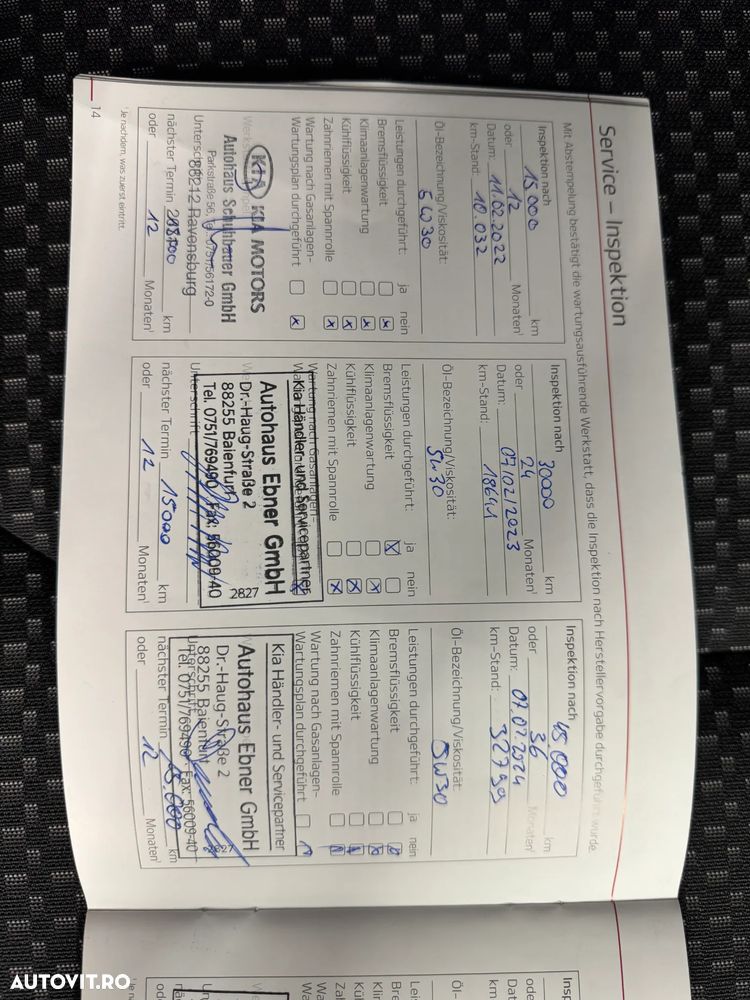 Service – Inspektion
Mit Abstempelung bestätigt die wartungsausführende Werkstatt, dass die Inspektion nach Herstellervorgabe durchgeführt wurde.
Inspektion nach
15000 km
oder 12 Monaten¹
Datum: 11.02.2022
km-Stand: 10.032
Öl-Bezeichnung/Viskosität:
5W30
Leistungen durchgeführt: ja nein
Bremsflüssigkeit x
Klimaanlagenwartung x
Kühlflüssigkeit x
Zahnriemen mit Spannrolle x
Wartung nach Gasanlagen-
Wartungsplan durchgeführt x
KIA KIA MOTORS
Autohaus Schuhbauer GmbH
Parkstraße 56, Tel. 0751/56172-0
88212 Ravensburg
Unterschrift
nächster Termin km
oder 12 Monaten¹
Inspektion nach
30000 km
oder 24 Monaten¹
Datum: 07/02/2023
km-Stand: 18641
Öl-Bezeichnung/Viskosität:
5W30
Leistungen durchgeführt: ja nein
Bremsflüssigkeit x
Klimaanlagenwartung x
Kühlflüssigkeit x
Zahnriemen mit Spannrolle x
Wartung nach Gasanlagen-
Kia Händler- und Servicepartner
Autohaus Ebner GmbH
Dr.-Haug-Straße 2
88255 Baienfurt
Tel. 0751/769490 Fax: 56009-40
2827
Unterschrift
nächster Termin 15000 km
oder 12 Monaten¹
Inspektion nach
45000 km
oder 36 Monaten¹
Datum: 07.02.2024
km-Stand: 32739
Öl-Bezeichnung/Viskosität:
5W30
Leistungen durchgeführt: ja nein
Bremsflüssigkeit
Klimaanlagenwartung
Kühlflüssigkeit
Zahnriemen mit Spannrolle
Wartung nach Gasanlagen-
Wartungsplan durchgeführt
Kia Händler- und Servicepartner
Autohaus Ebner GmbH
Dr.-Haug-Straße 2
88255 Baienfurt
Tel. 0751/769490 Fax: 56009-40
2827
Unterschrift
nächster Termin km
oder 12 Monaten¹
¹Je nachdem, was zuerst eintritt.
14
AUTOVIT.RO